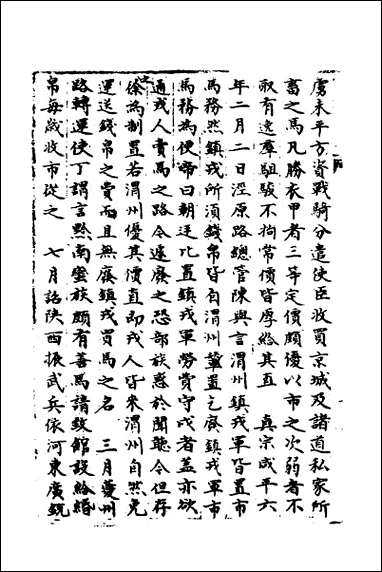 虜未平方資戰騎分遣使臣收買京城及諸道私家所
畜之馬凡勝衣甲者三等定價頗優以市之次弱者不
取有逸羣駔駿不拘常價皆厚給其直　真宗咸平六
年二月二日涇原路總管陳興言渭州鎮戎軍皆置市
馬務然鎮戎所須錢帛皆自渭州輦置乞廢鎮戎軍市
馬務為便帝曰朝廷比置鎮戎軍勞費守戍者蓋亦欲
通戎人賣馬之路今遽廢之恐部族惑於聞聽令但存
之條為制置若渭州優其價直即戎人皆來渭州自然免
運送錢帛之費而且無廢鎮戎買馬之名　三月夔州
路轉運使丁謂言黔南蠻族頗有善馬請致館設給緡
帛每歲收市從之　七月詔陝西振武兵依河東廣銳